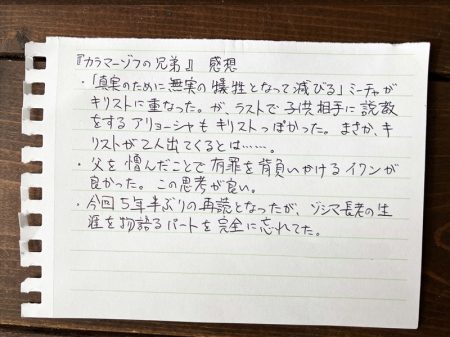 『カラマーゾフの兄弟』 感想
・「真実のために無実の犠牲となって滅びる」ミーチャが
キリストに重なった。が、ラストで子供相手に説教
をするアリョーシャもキリストっぽかった。まさか、キ
リストが2人出てくるとは……。
・父を憎んだことで有罪を背負いかけるイワンが
良かった。この思考が良い。
・今回5年半ぶりの再読となったが、ゾシマ長老の生
涯を物語るパートを完全に忘れてた。